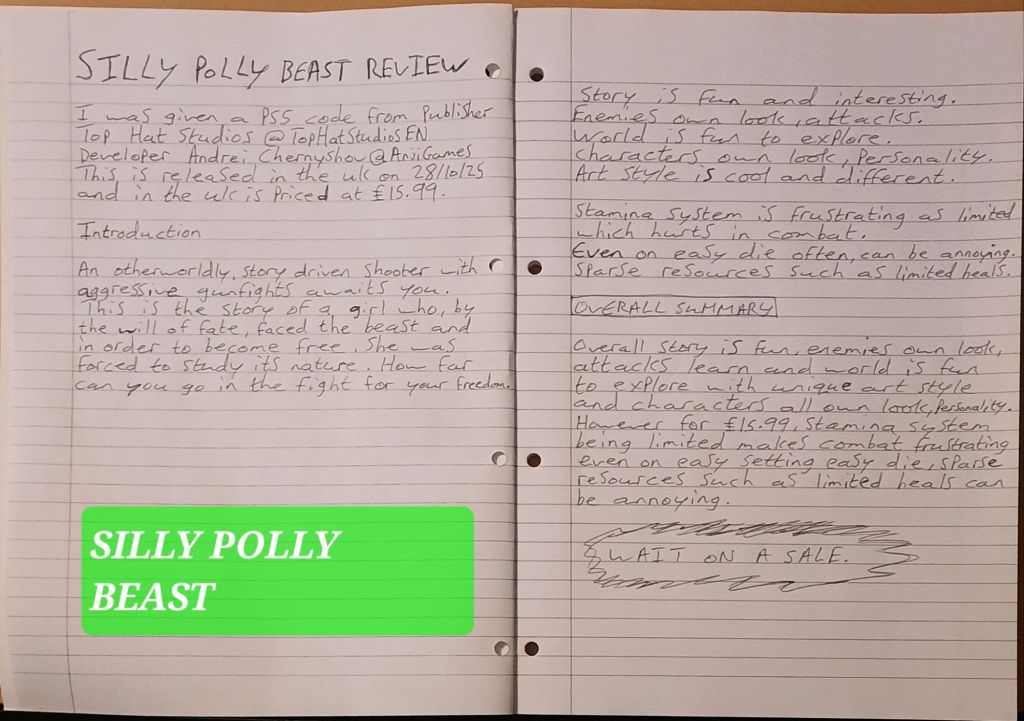 SILLY POLLY BEAST REVIEW
I was given a PS5 code from Publisher
Top Hat Studios @TopHatStudiosEN
Developer Andrei Chernyshov @AnjiGames
This is released in the uk on 28/10/25
and in the uk is Priced at £15.99.
Introduction
An otherworldly, story driven shooter with
aggressive gunfights awaits you.
This is the story of a girl who, by
the will of fate, faced the beast and
in order to become free. She was
forced to study its nature. How far
can you go in the fight for your freedom.
SILLY POLLY
BEAST
Story is fun and interesting.
Enemies own look, attacks.
World is fun to explore.
Characters own look, Personality.
Art style is cool and different.
Stamina system is frustrating as limited
which hurts in combat.
Even on easy die often, can be annoying.
Sparse resources such as limited heals.
OVERALL SUMMARY
Overall story is fun, enemies own look,
attacks learn and world is fun
to explore with unique art style
and characters all own look, Personality.
However for £15.99, Stamina system
being limited makes combat frustrating
even on easy setting easy die, sparse
resources such as limited heals can
be annoying.
WAIT ON A SALE.